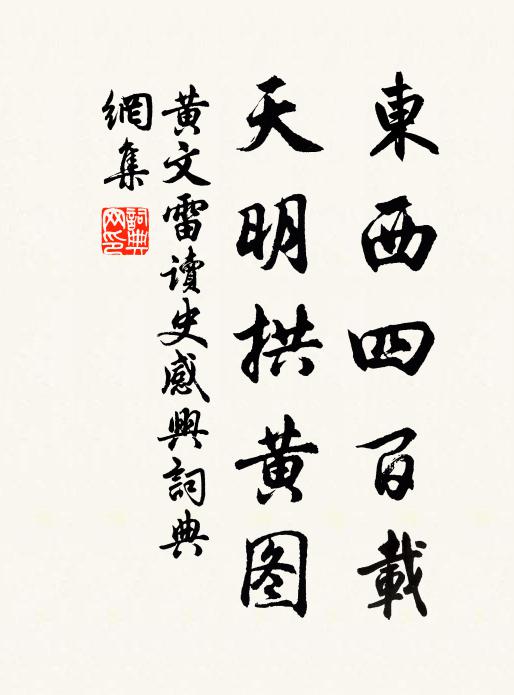 東西四百載
天明拱黄图
黄文雷讀史感興詞典
網集
詞典
网印